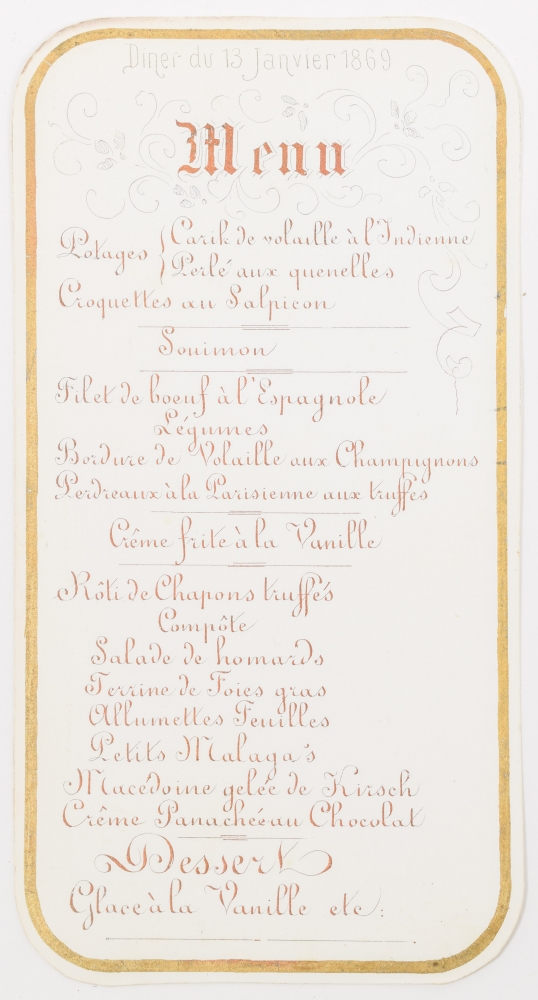 Diner du 13 Janvier 1869
Menu
Potages { Carik de volaille à l'Indienne
Perlé aux quenelles
Croquettes au Salpicon
Souimon
Filet de boeuf à l'Espagnole
Légumes
Bordure de Volaille aux Champignons
Perdreaux à la Parisienne aux truffes
Crême frite à la Vanille
Rôti de Chapons truffés
Compôte
Salade de homards
Terrine de Foies gras
Allumettes Feuilles
Petits Malaga's
Macedoine gelée de Kirsch
Crême Panachée au Chocolat
Dessert
Glace à la Vanille etc: